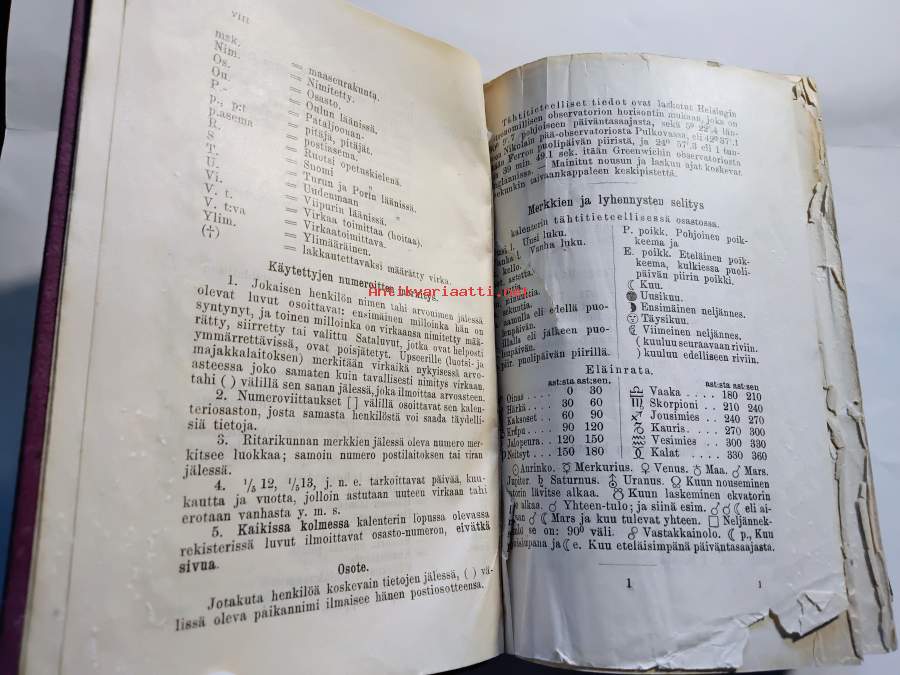 VIII
msk. = maaseurakunta.
Nim. = Nimitetty.
Os. = Osasto.
Ou. = Oulun läänissä.
P.- = Pataljoonan-
p., p:t = pitäjä, pitäjät.
p.asema = postiasema.
R. = Ruotsi opetuskielenä.
S = Suomi „
T. = Turun ja Porin läänissä.
U. = Uudenmaan „
Vi. = Viipurin läänissä.
V. t. = Virkaa toimittaa (hoitaa).
V. t:va = Virkaatoimittava.
Ylim. = Ylimääräinen.
(†) = lakkautettavaksi määrätty virka.
Käytettyjen numeroitten
1. Jokaisen henkilön nimen tahi arvonimen jälessä
olevat luvut osoittavat: ensimäinen milloinka hän on
syntynyt, ja toinen milloinka on virkaansa nimitetty mää-
rätty, siirretty tai valittu Sataluvut, jotka ovat helposti
ymmärrettävissä, ovat poisjätetyt. Upseerille (luotsi- ja
majakkalaitoksen) merkitään virkaikä nykyisessä arvo-
asteessa joko samaten kuin tavallisesti nimitys virkaan,
tahi ( ) välillä sen sanan jälessä, joka ilmoittaa arvoasteen.
2. Numeroviittaukset [] välillä osoittavat sen kalen-
teriosaston, josta samasta henkilöstä voi saada täydelli-
siä tietoja.
3. Ritarikunnan merkkien jälessä oleva numero mer-
kitsee luokkaa; samoin numero postilaitoksen tai viran
jälessä.
4. 1/5 12, 1/5 13, j. n. e. tarkoittavat päivää, kuu-
kautta ja vuotta, jolloin astutaan uuteen virkaan tahi
erotaan vanhasta y. m. s.
5. Kaikissa kolmessa kalenterin lopussa olevassa
rekisterissä luvut ilmoittavat osasto-numeron, eivätkä
sivua.
Osote.
Jotakuta henkilöä koskevain tietojen jälessä, ( ) vä-
lissä oleva paikannimi ilmaisee hänen postiosotteensa.
Antikvariaatti.net
Tähtitieteelliset tiedot ovat lasketut Helsingin
observatorion horisontin mukaan, joka on
pohjoiseen päiväntasaajasta, sekä 5º 22'.4 län-
Nikolain pää-observatoriosta Pulkovassa, eli 42º 37'.1
Ferron puolipäivän piiristä, ja 24º 57'.3 eli 1 tun-
39 min. 49.1 sek. itään Greenwichin observatoriosta
Englannissa. — Mainitut nousun ja laskun ajat koskevat
taivaankappaleen keskipistettä.
Merkkien ja lyhennysten selitys
kalenterin tähtitieteellisessä osastossa.
l. Uusi luku.
l. Vanha luku.
kello.
astetta.
minuuttia
sekuntia.
aamulla eli edellä puo-
lenpäivän.
illalla eli jälkeen puo-
lenpäivän.
piir. puolipäivän piirillä.
P. poikk. Pohjoinen poik-
keema ja
E. poikk. Eteläinen poik-
keema, kulkiessa puoli-
päivän piirin poikki.
☾ Kuu.
● Uusikuu.
◗ Ensimäinen neljännes.
☺ Täysikuu.
☾ Viimeinen neljännes.
( kuuluu seuraavaan riviin.
) kuuluu edelliseen riviin.
Eläinrata.
ast:sta ast:sen.
Oinas 0 30
Härkä 30 60
Kaksoset 60 90
Krapu 90 120
Jalopeura 120 150
Neitsyt 150 180
ast:sta ast:sen
♎ Vaaka 180 210
♏ Skorpioni 210 240
♐ Jousimies 240 270
♑ Kauris 270 300
♒ Vesimies 300 330
♓ Kalat 330 360
☉ Aurinko. ☿ Merkurius. ♀ Venus. ♁ Maa. ♂ Mars.
Jupiter. ♄ Saturnus. ♅ Uranus. ☊ Kuun nouseminen
lävitse alkaa. ☋ Kuun laskeminen ekvatorin
alkaa. ☌ Yhteen-tulo; ja siinä esim. ☌ ♂ ☾ eli ai-
☌ ☾ Mars ja kuu tulevat yhteen. □ Neljännek-
se on: 90º väli. ☍ Vastakkainolo. ☾ p., Kuu
ja ☾ e. Kuu eteläisimpänä päiväntasaajasta.
1
1